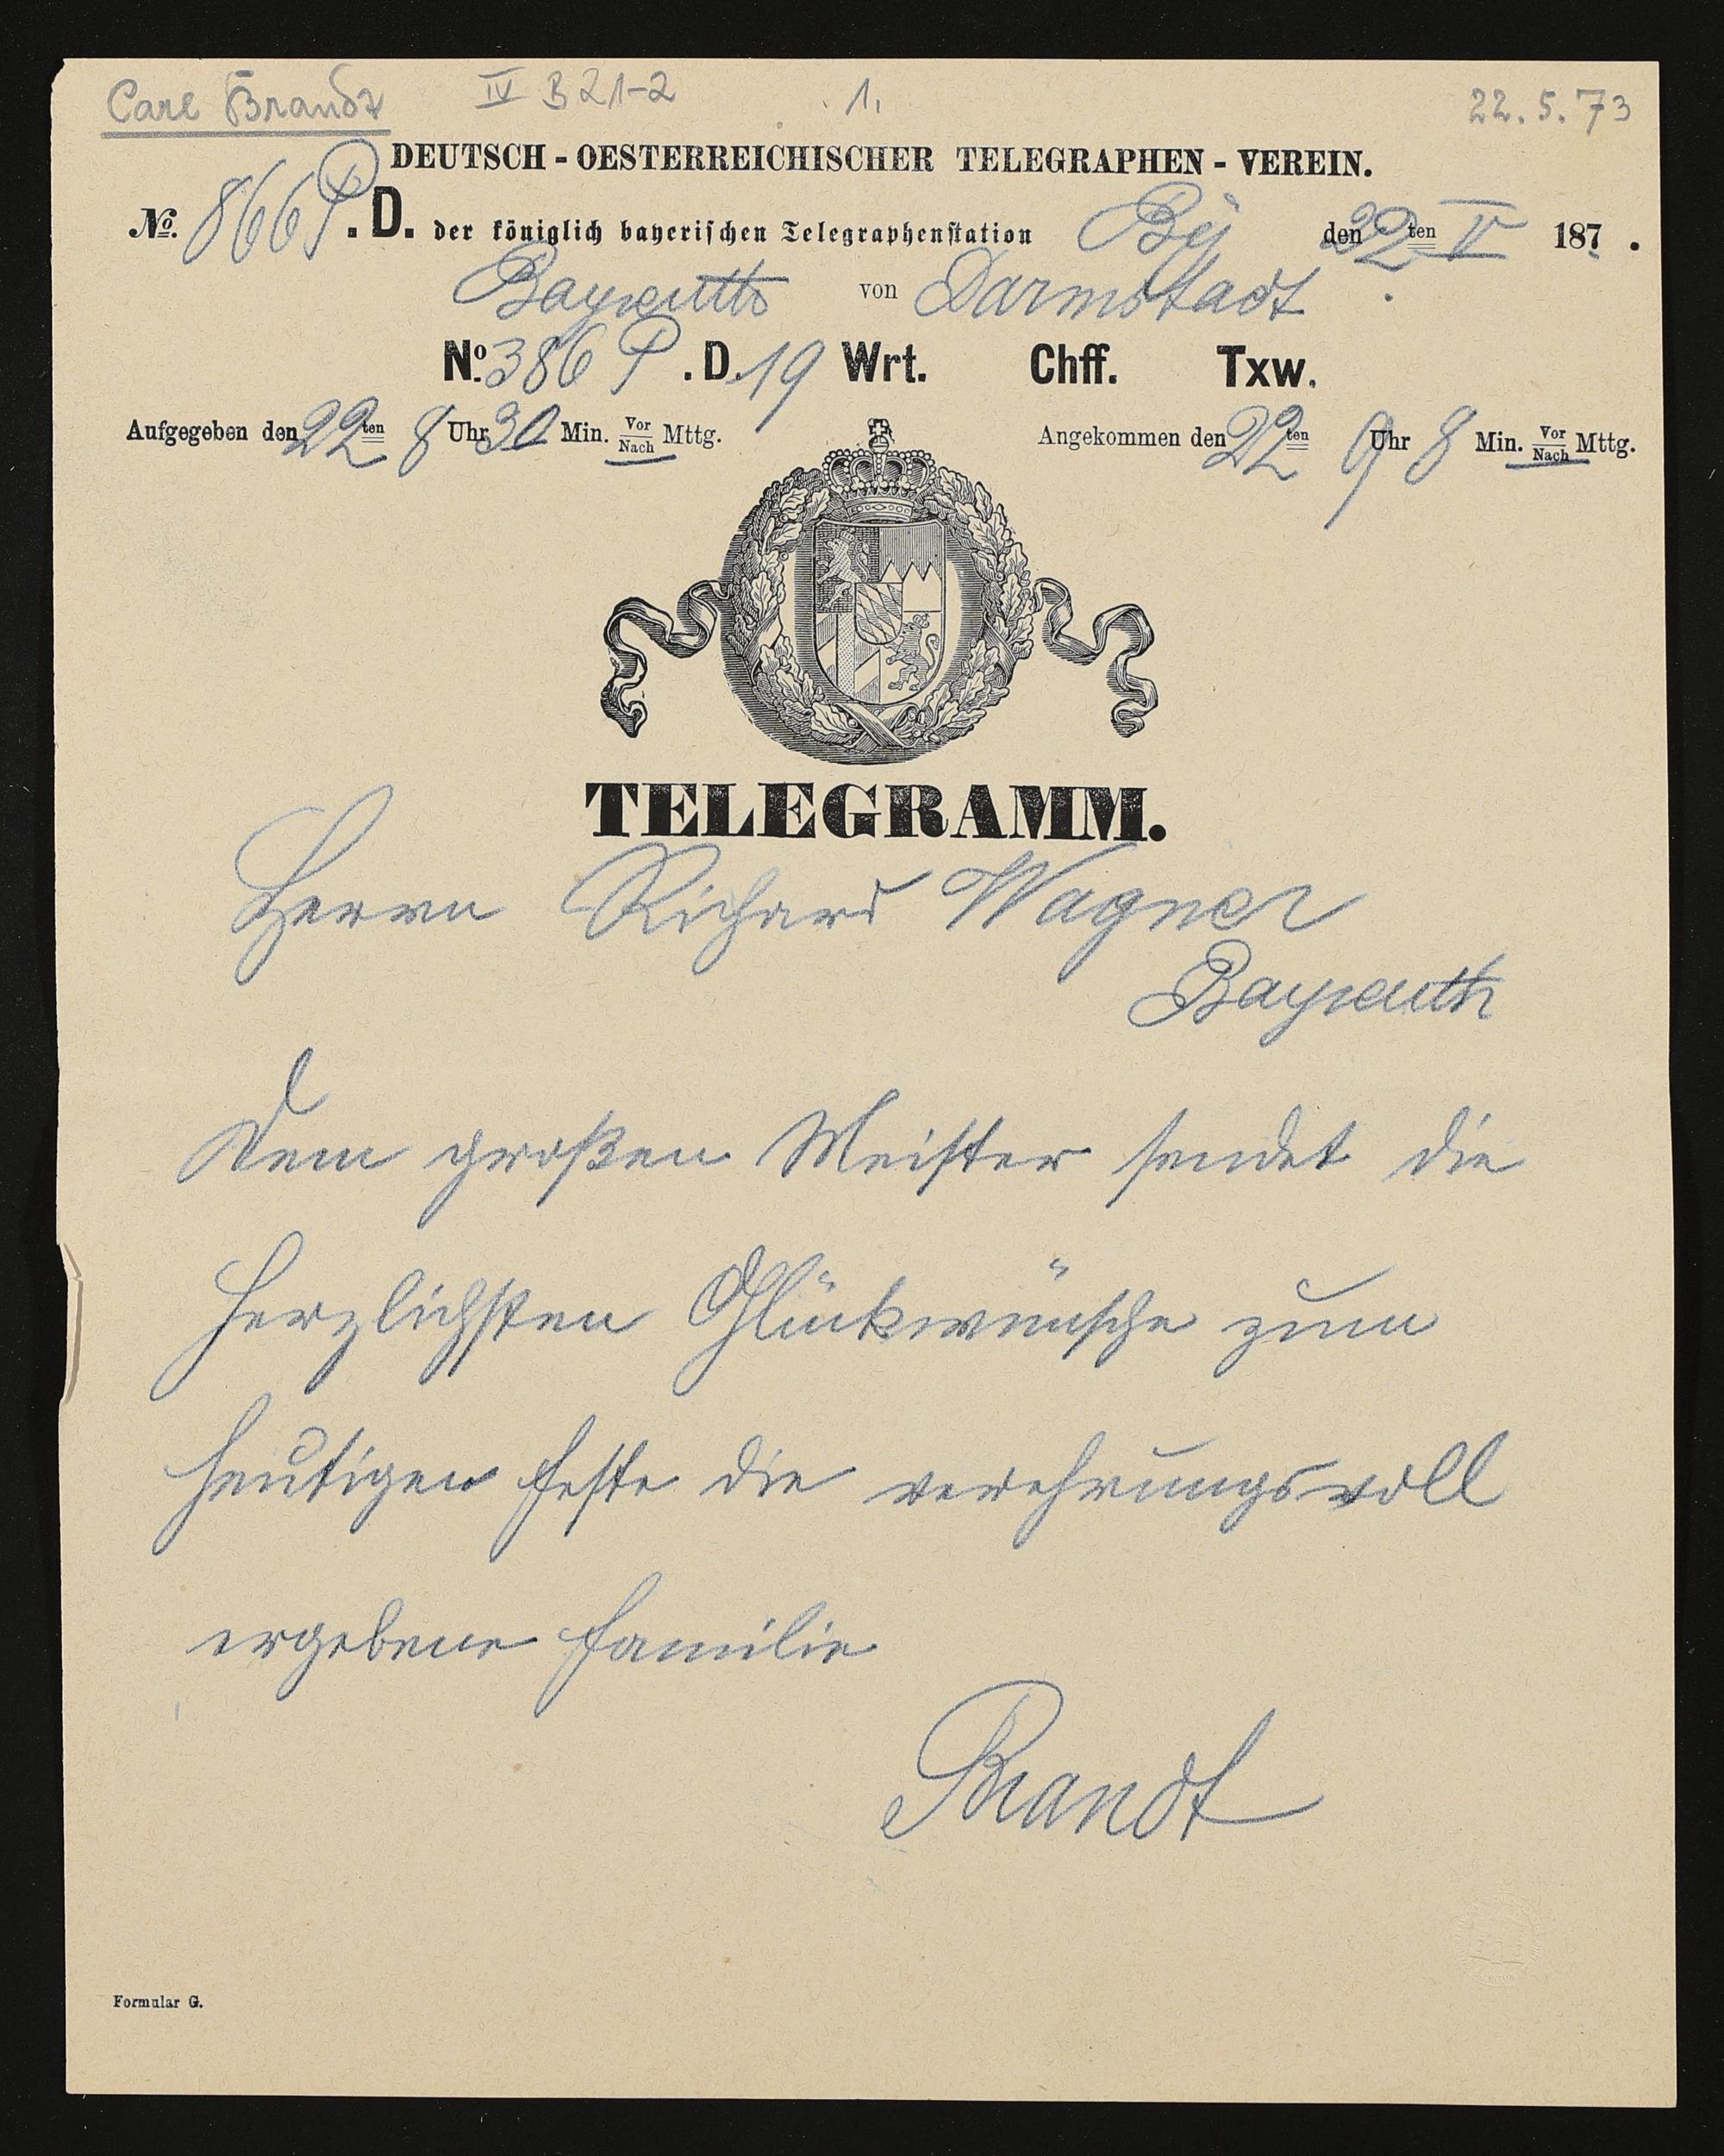 Carl Brandt IV B 21-2 1. 22.5.73
DEUTSCH-OESTERREICHISCHER TELEGRAPHEN-VEREIN.
No. 866 P. D. der königlich bayerischen Telegraphenstation By den 22ten V 187 .
Bayreuth von Darmstadt
No. 386 P. D. 19 Wrt. Chff. Txw.
Aufgegeben den 22ten 8 Uhr 30 Min. Vor/Nach Mttg. Angekommen den 22ten 9 Uhr 8 Min. Vor/Nach Mttg.
TELEGRAMM.
Herrn Richard Wagner
Bayreuth
Dem großen Meister sendet die
herzlichsten Glückwünsche zum
heutigen Feste die verehrungsvoll
ergebene Familie
Brandt
Formular G.